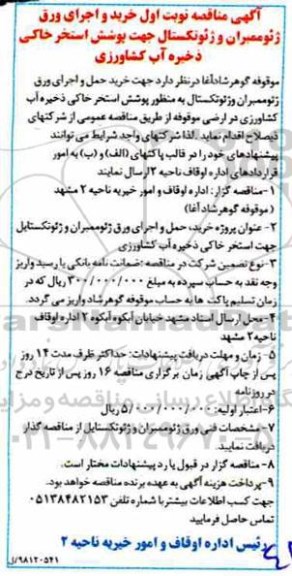 آگهی مناقصه نوبت اول خرید و اجرای ورق
ژئوممبران و ژئوتکستال جهت پوشش استخر خاکی
ذخیره آب کشاورزی
موقوفه گوهرشادآغا درنظر دارد جهت خرید حمل و اجرای ورق
ژئوممبران وژئوتکستال به منظور پوشش استخر خاکی ذخیره آب
کشاورزی در اراضی موقوفه از طریق مناقصه عمومی از شرکتهای
ذیصلاح اقدام نماید. لذا شرکتهای واجد شرایط می توانند
پیشنهادهای خود را در قالب پاکتهای (الف) و (ب) به امور
قراردادهای اداره اوقاف ناحیه ۲ ارسال نمایند
۱-مناقصه گزار: اداره اوقاف و امور خیریه ناحیه ۲ مشهد
(موقوفه گوهرشاد آغا)
۲- عنوان پروژه خرید، حمل و اجرای ورق ژئوممبران و ژئوتکستایل
جهت استخر خاکی ذخیره آب کشاورزی
۳-نوع تضمین شرکت در مناقصه :ضمانت نامه بانکی یا رسید واریز
وجه نقد به حساب سپرده به مبلغ ۳۰۰/۰۰۰/۰۰۰ ریال که در
زمان تسلیم پاکت ها به حساب موقوفه گوهرشاد واریز می گردد.
۴- محل ارسال اسناد مشهد خیابان آبکوه آبکوه ۲ اداره اوقاف
ناحیه ۲ مشهد
۵- زمان و مهلت دریافت پیشنهادات: حداکثر ظرف مدت ۱۴ روز
پس از چاپ آگهی زمان برگزاری مناقصه ۱۶ روز پس از تاریخ درج
در روزنامه
۶-اعتبار اولیه: ۵/۰۰۰/۰۰۰/۰۰۰ ریال
۷-مشخصات فنی ورق ژئوممبران و ژئوتکستایل از مناقصه گذار
دریافت نمایید.
۸- مناقصه گزار در قبول یا رد پیشنهادات مختار است.
۹-پرداخت هزینه آگهی به عهده برنده مناقصه خواهد بود.
جهت کسب اطلاعات بیشتر با شماره تلفن ۰۵۱۳۸۴۸۲۱۵۳
تماس حاصل فرمایید
رئیس اداره اوقاف و امور خیریه ناحیه ۲
۹۸۱۲۰۵۴۱/ل